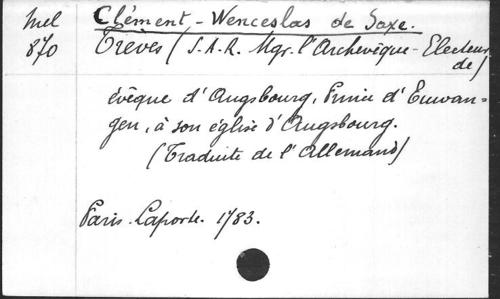 Mel Clément-Wenceslas de Saxe.
870 Trèves (S.A.R. Mgr. l'Archevêque-Electeur
de)
évêque d'Augsbourg, Prince d'Elwan-
gen, à son église d'Augsbourg.
(Traduite de l'Allemand)
Paris. Laporte. 1783.